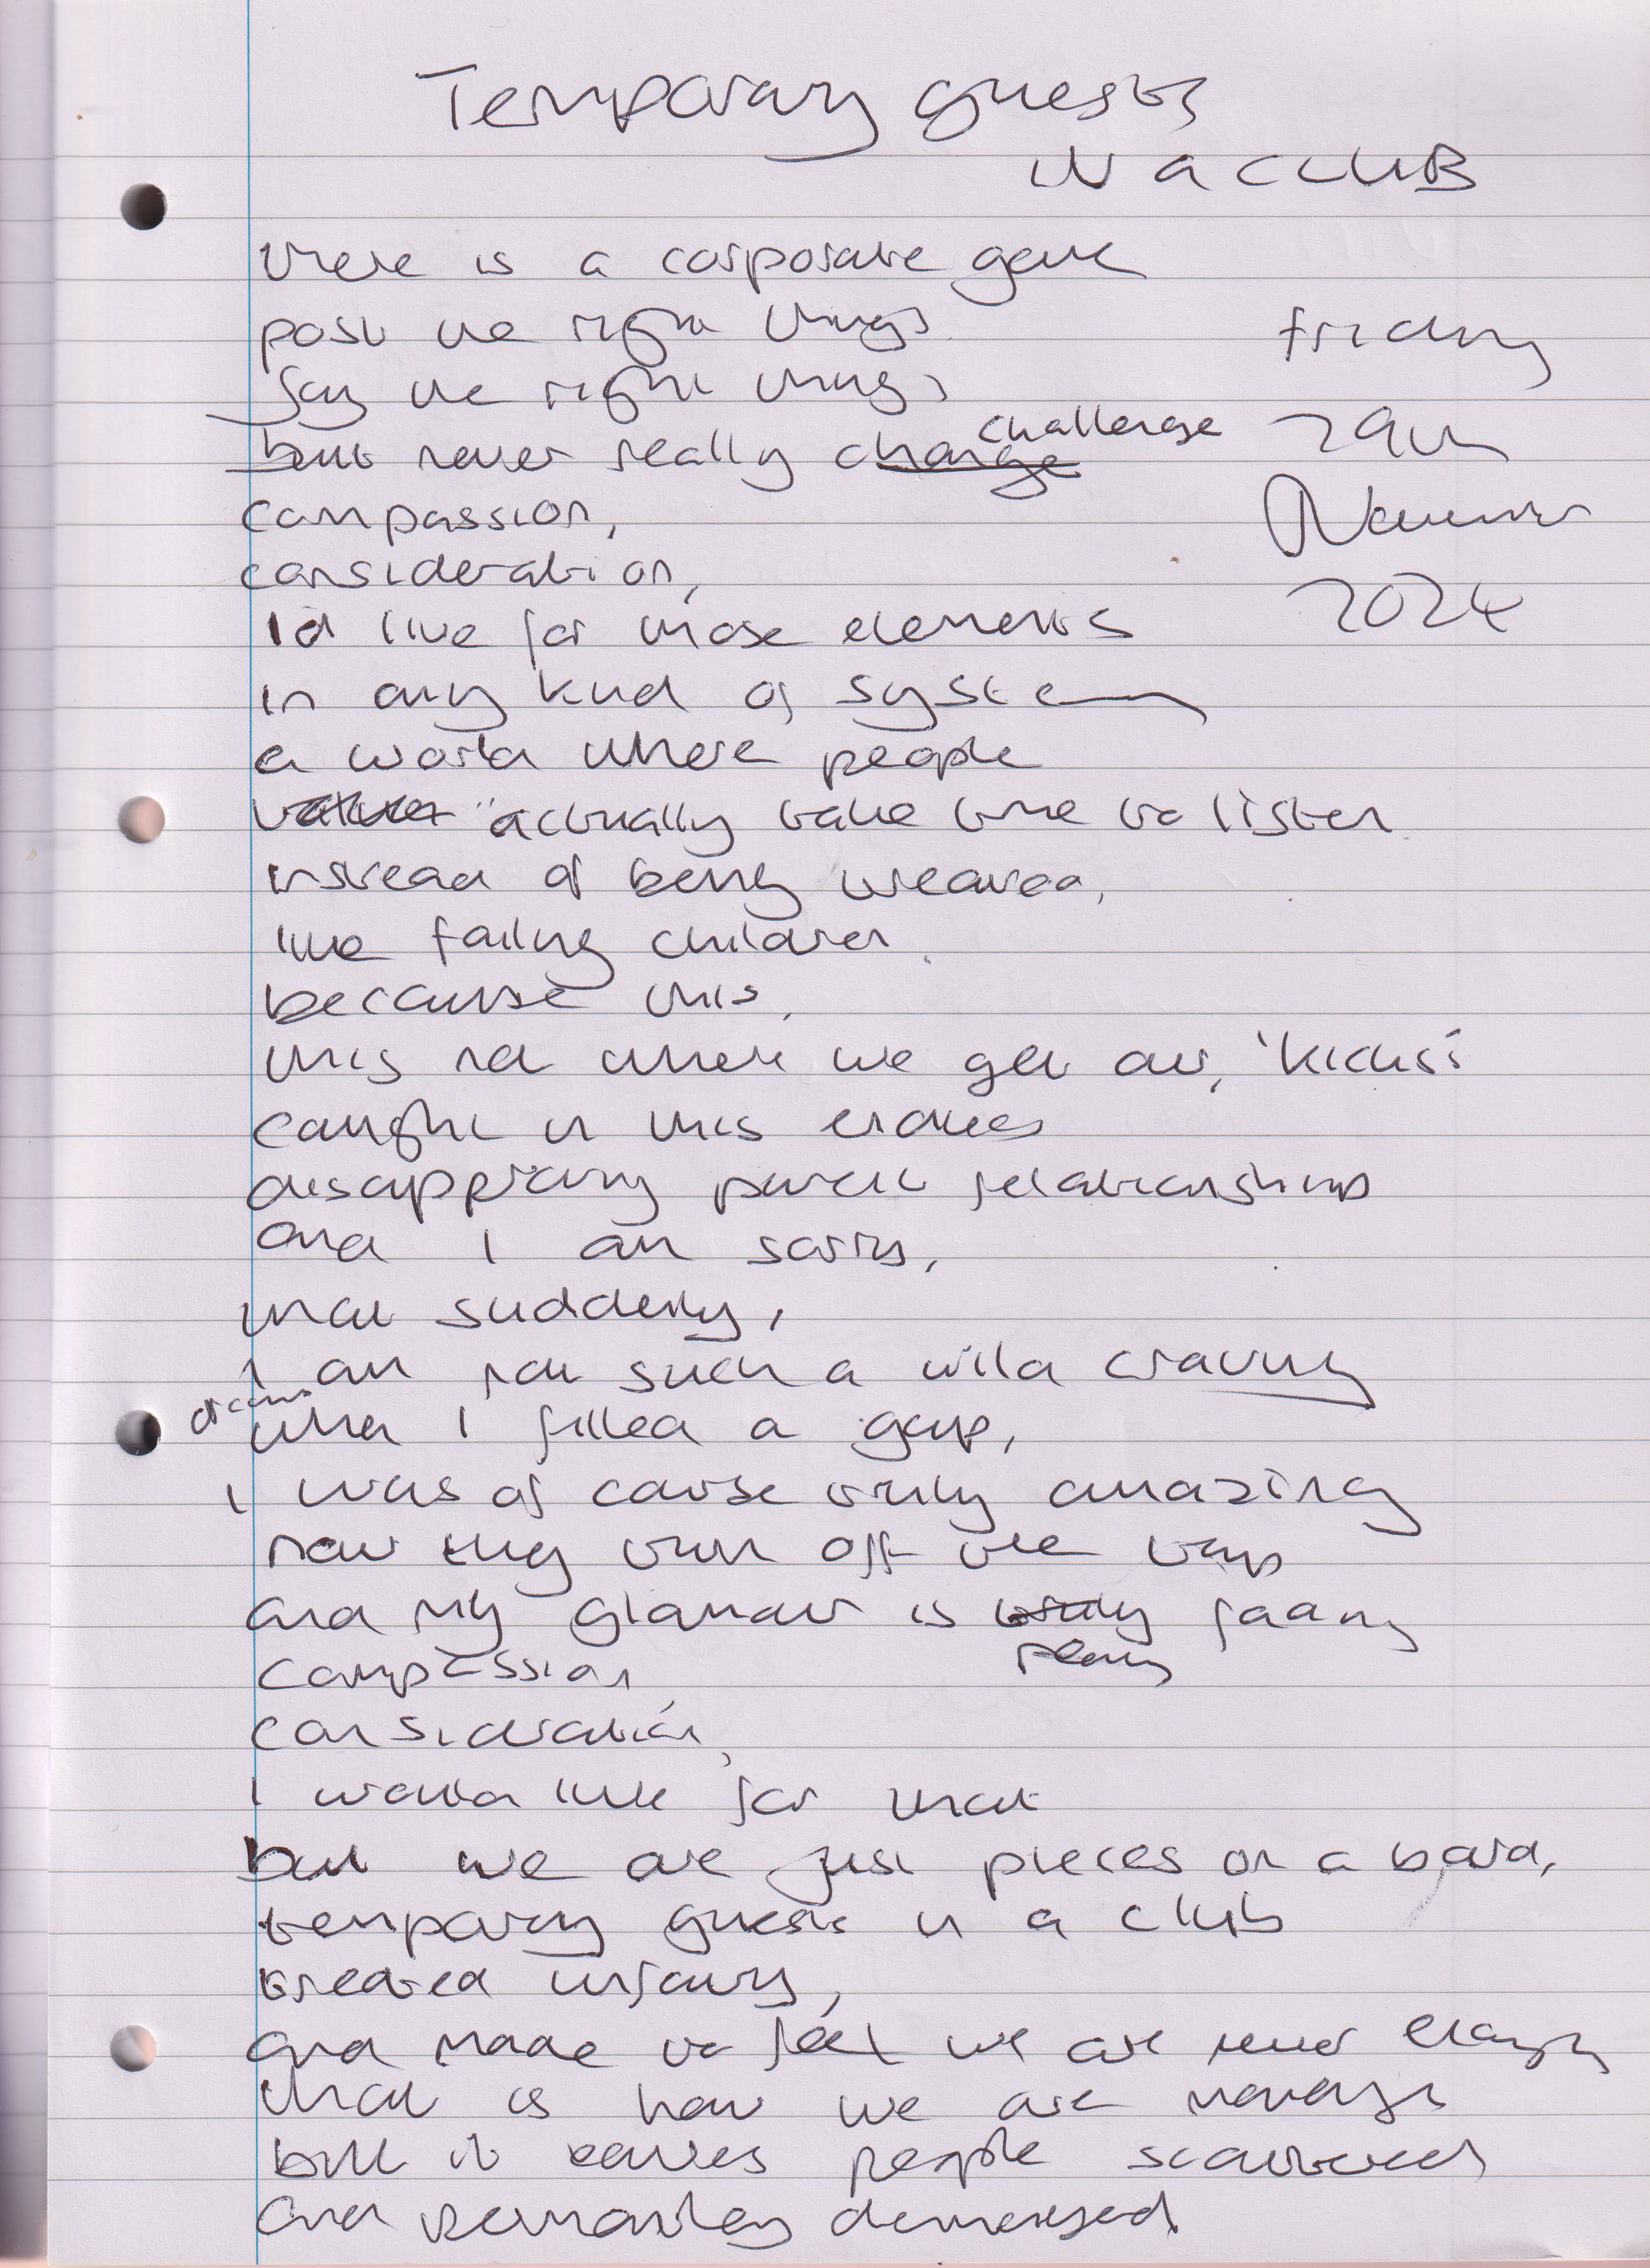 Temporary guests
IN A CLUB
there is a corporate game
post the right things
Friday
say the right things
29th
but never really change challenge
November
compassion,
consideration,
2024
I'd live for those elements
in any kind of system
a world where people
actually take time to listen
instead of being treated,
like failing children.
because this,
this not where we get our, 'kicks'
caught in this endless
disapproving parent relationships
and I am sorry,
that suddenly,
I am not such a wild craving
when I filled a gap,
I was of course truly amazing
now they turn off the tap
and my glamour is truly fading
really
compassion,
consideration,
I would live for that
but we are just pieces on a board,
temporary guests in a club
treated unfairly,
and made to feel we are never enough
that is how we are managed
but it leaves people scattered
and permanently damaged.